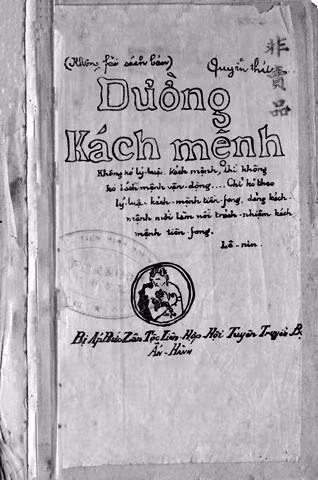 (Không fải sách bán)
Quyển thứ
非賣品
Đường
Kách mệnh
Không kó lý-luận kách mệnh, thì không
kó kách mệnh vận-động.... Chỉ kó theo
lý-luận kách-mệnh tiền-fong, đảng kách-
mệnh mới làm nổi trách-nhiệm kách
mệnh tiền fong.
Lê-nin.
Bị Áp Bức Zân Tộc Liên Hợp Hội Tuyên Truyền Bộ
Ấn-Hành